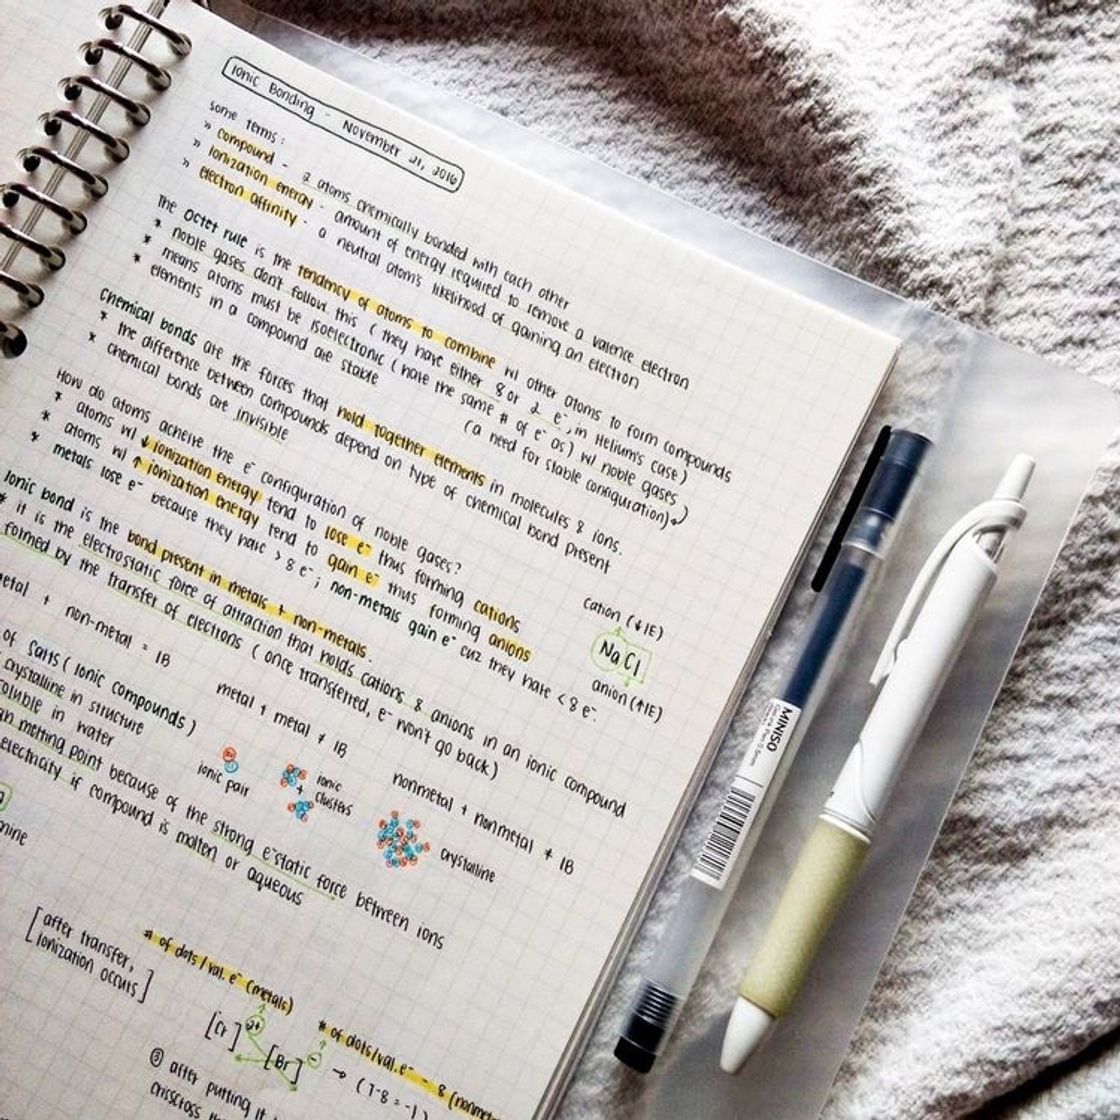 Ionic Bonding - November 21, 2016
some terms:
» compound - 2 atoms chemically bonded with each other
» Ionization energy - amount of energy required to remove a valence electron
» electron affinity - a neutral atom's likelihood of gaining an electron
The octet rule is the tendency of atoms to combine w/ other atoms to form compounds
* noble gases don't follow this (they have either 8 or 2 e⁻, in Helium's case)
* means atoms must be isoelectronic (have the same # of e⁻ as) w/ noble gases
* elements in a compound are stable
(a need for stable configuration)
Chemical bonds are the forces that hold together elements in molecules & ions.
* the difference between compounds depend on type of chemical bond present
* chemical bonds are invisible
How do atoms acheive the e⁻ configuration of noble gases?
* atoms w/ ↓ ionization energy tend to lose e⁻ thus forming cations
* atoms w/ ↑ ionization energy tend to gain e⁻ thus forming anions
* metals lose e⁻ because they have > 8 e⁻; non-metals gain e⁻ cuz they have < 8 e⁻.
cation (↓IE)
NaCl
anion (↑IE)
Ionic bond is the bond present in metals + non-metals.
* it is the electrostatic force of attraction that holds cations & anions in an ionic compound
formed by the transfer of electrons (once transferred, e⁻ won't go back)
+ non-metal = IB
metal + metal ≠ IB
nonmetal + nonmetal ≠ IB
of salts (ionic compounds)
crystalline in structure
in water
melting point because of the strong e'static force between ions
electricity if compound is molten or aqueous
ionic pair
ionic
+
clusters
crystalline
[after transfer,
ionization occurs]
# of dots/val. e⁻ (metals)
2+
[Br]⁻
# of dots/val. e⁻ - 8
→ (7-8 = -1)
③ after putting it
crisscross
MINISO